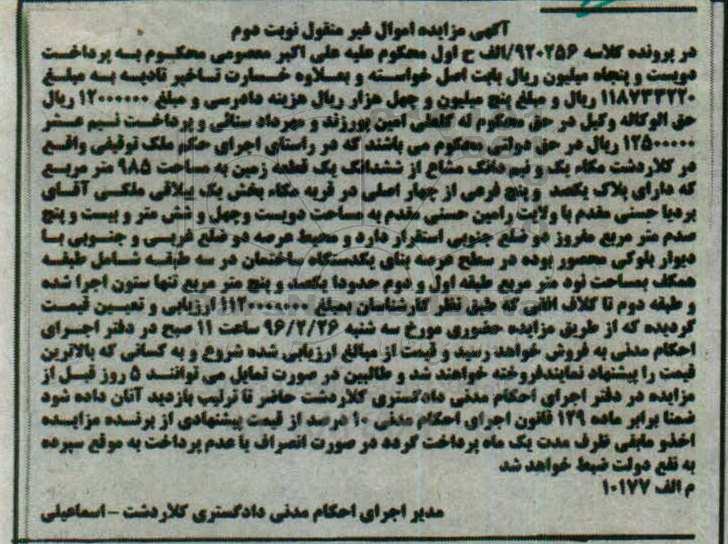 آگهی مزایده اموال غیر منقول نوبت دوم
در پرونده کلاسه ۹۲۰۲۵۶/الف ح اول محکوم علیه علی اکبر معصومی محکوم به پرداخت
دویست و پنجاه میلیون ریال بابت اصل خواسته و بعلاوه خسارت تاخیر تادیه به مبلغ
۱۱۸۷۳۳۲۲۰ ریال و مبلغ پنج میلیون و چهل هزار ریال هزینه دادرسی و مبلغ ۱۲۰۰۰۰۰۰ ریال
حق الوکاله وکیل در حق محکوم له امین پورزند و مهرداد سنائی و پرداخت نیم عشر
۱۲۵۰۰۰۰۰ ریال در حق دولتی محکوم می باشند که در راستای اجرای حکم ملک توقیفی واقع
در کلاردشت مکاء یک و نیم دانگ مشاع از ششدانگ یک قطعه زمین به مساحت ۹۸۵ متر مربع
که دارای پلاک یکصد و پنج فرعی از چهار اصلی در قریه مکاء بخش یک ییلاقی ملکی آقای
بردیا حسنی مقدم با ولایت رامین حسنی مقدم به مساحت دویست وچهل و شش متر و بیست و پنج
صدم متر مربع مفروز دو ضلع جنوبی استقرار دارد و محیط عرصه دو ضلع غربی و جنوبی با
دیوار بلوکی محصور بوده در سطح عرصه بنای یکدستگاه ساختمان در سه طبقه شامل طبقه
همکف بمساحت نود متر مربع طبقه اول و دوم حدودا یکصد و پنج متر مربع تنها ستون اجرا شده
و طبقه دوم تا کلاف افقی که طبق نظر کارشناسان بمبلغ ۱۱۲۰۰۰۰۰۰۰ ارزیابی و تعیین قیمت
گردیده که از طریق مزایده حضوری مورخ سه شنبه ۹۶/۲/۲۶ ساعت ۱۱ صبح در دفتر اجرای
احکام مدنی به فروش خواهد رسید و قیمت از مبالغ ارزیابی شده شروع و به کسانی که بالاترین
قیمت را پیشنهاد نمایندفروخته خواهند شد و طالبین در صورت تمایل می توانند ۵ روز قبل از
مزایده در دفتر اجرای احکام مدنی دادگستری کلاردشت حاضر تا ترتیب بازدید آنان داده شود
ضمنا برابر ماده ۱۲۹ قانون اجرای احکام مدنی ۱۰ درصد از قیمت پیشنهادی از برنده مزایده
اخذو مابقی ظرف مدت یک ماه پرداخت گردد در صورت انصراف یا عدم پرداخت به موقع سپرده
به نفع دولت ضبط خواهد شد
م الف ۱۰۱۷۷
مدیر اجرای احکام مدنی دادگستری کلاردشت - اسماعیلی